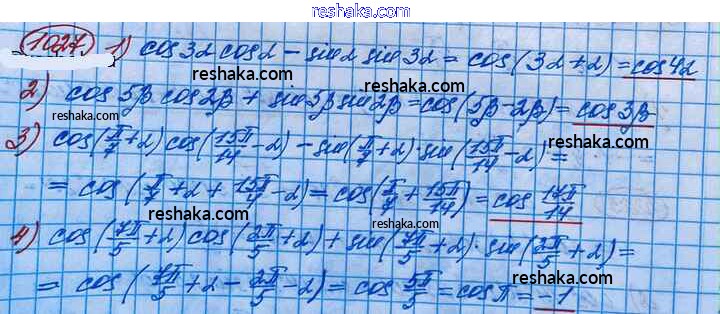 www.reshaka.com
1027. 1) cos3α cosα − sinα sin3α = cos(3α+α) = cos4α
reshaka.com reshaka.com
2) cos5β cos2β + sin5β sin2β = cos(5β−2β) = cos3β
reshaka.com reshaka.com
3) cos(π/7+α)cos(15π/14−α) − sin(π/7+α)·sin(15π/14−α) =
= cos(π/7+α+15π/14−α) = cos(π/7+15π/14) = cos 17π/14
reshaka.com reshaka.com
4) cos(7π/5+α)cos(2π/5+α)+sin(7π/5+α)·sin(2π/5+α) =
= cos(7π/5+α−2π/5−α) = cos 5π/5 = cosπ = −1
reshaka.com reshaka.com